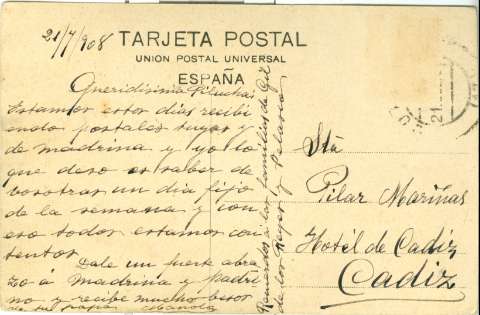 21/7/908
TARJETA POSTAL
UNION POSTAL UNIVERSAL
ESPAÑA
Queridisima Pilucha:
Estamos estos dias recibi
endo postales tuyas y
de madrina y yo lo
que deseo es saber de
vosotras un dia fijo
de la semana y con
eso todos estamos con
tentos.
Dale un fuerte abra
zo á Madrina y padri
no y recibe muchos besos
de tu papá
Recuerdos a las familias de Gil
de los Reyes y Pelayo
Sta
Pilar Mariñas
Hotel de Cadiz
Cadiz
21